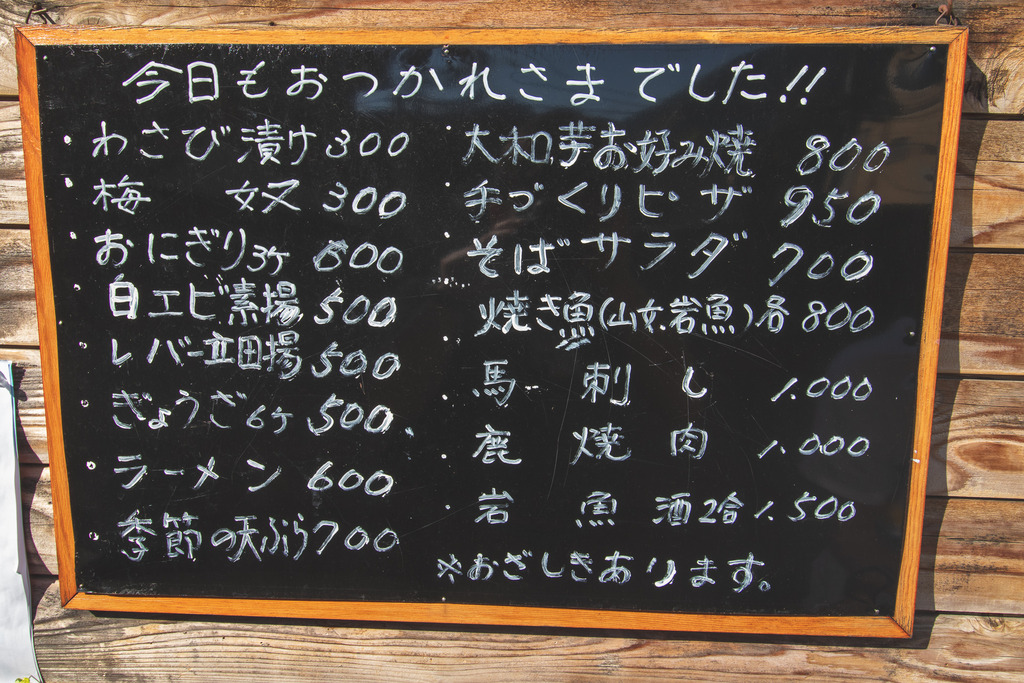 今日もおつかれさまでした!!
・わさび漬け 300
・梅 奴 300
・おにぎり3ヶ 600
・白エビ素揚 500
・レバー立田揚 500
・ぎょうざ6ヶ 500
・ラーメン 600
・季節の天ぷら 700
・大和芋お好み焼 800
・手づくりピザ 950
・そばサラダ 700
・焼き魚(山女.岩魚)各 800
・馬刺し 1.000
・鹿焼肉 1.000
・岩魚酒2合 1.500
※おざしきあります。